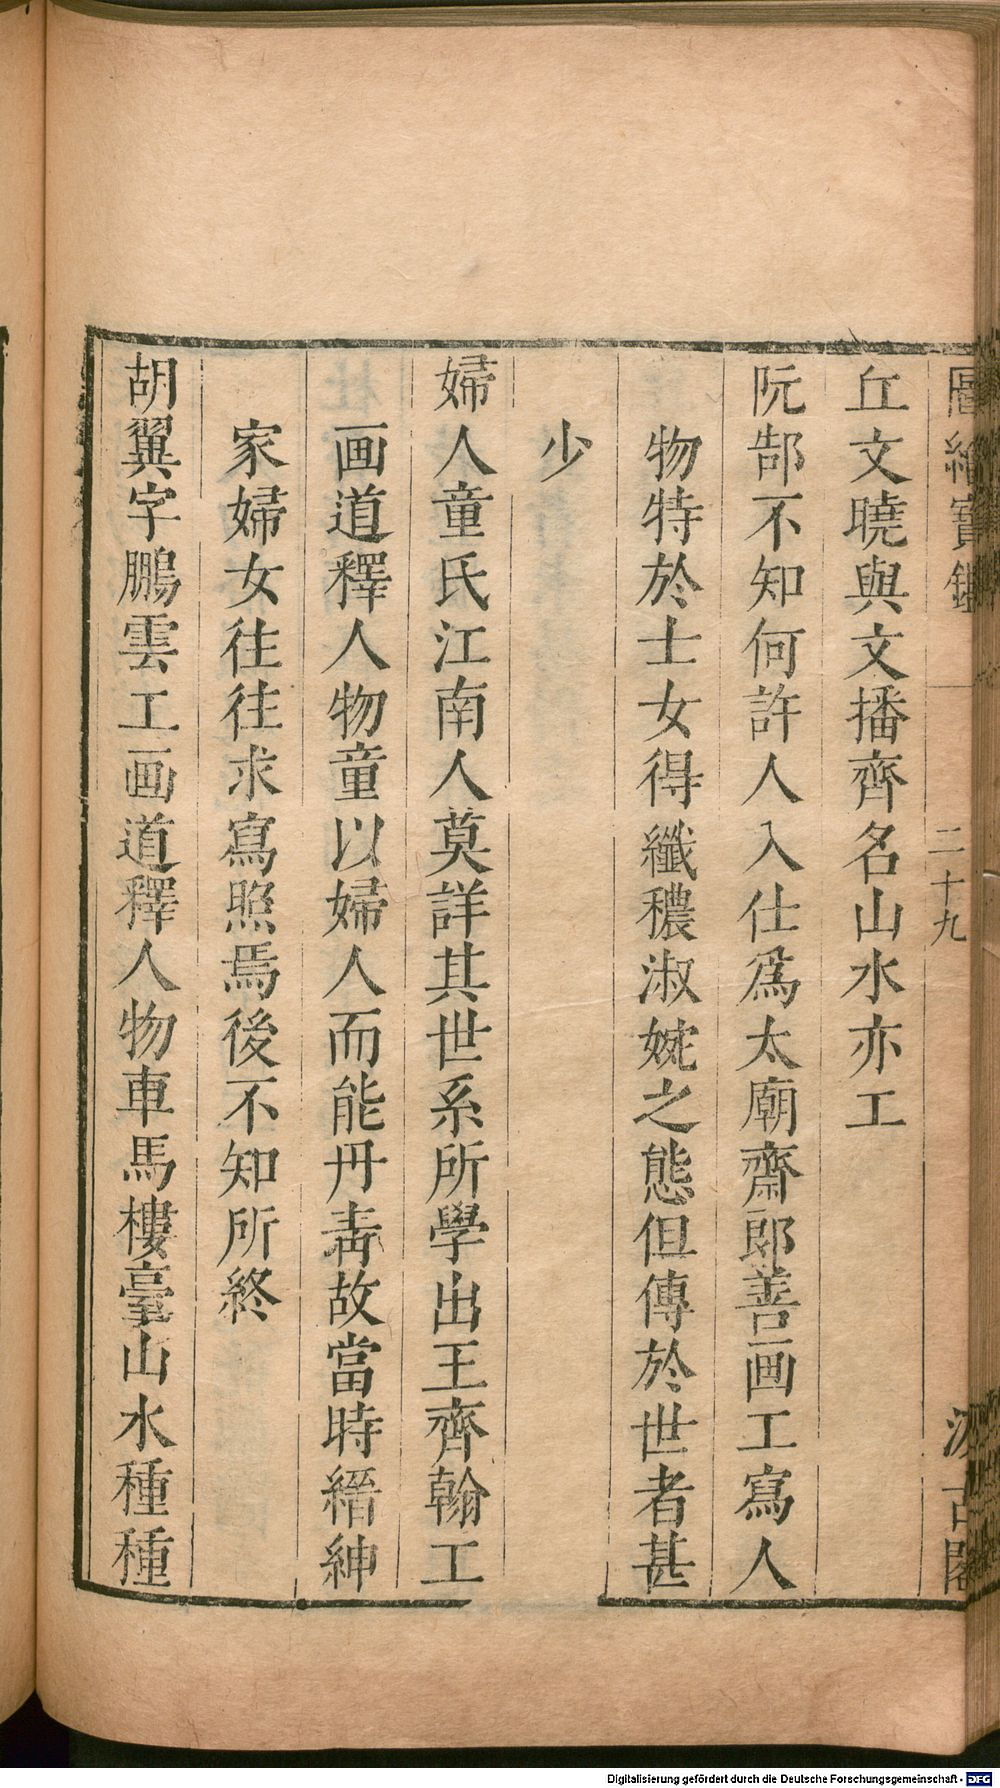 圖繪寶鑑 二十九 汲古閣
丘文曉與文播齊名山水亦工
阮郜不知何許人入仕爲太廟齋郎善画工寫人
物特於士女得纖穠淑婉之態但傳於世者甚
少
婦人童氏江南人莫詳其世系所學出王齊翰工
画道釋人物童以婦人而能丹青故當時縉紳
家婦女往往求寫照焉後不知所終
胡翼字鵬雲工画道釋人物車馬樓臺山水種種
Digitalisierung gefördert durch die Deutsche Forschungsgemeinschaft - DFG